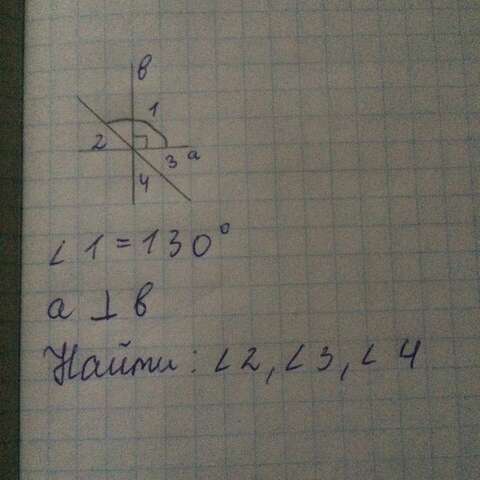 в
1
2
3 а
4
∠1=130°
а ⊥ в
Найти: ∠2, ∠3, ∠4